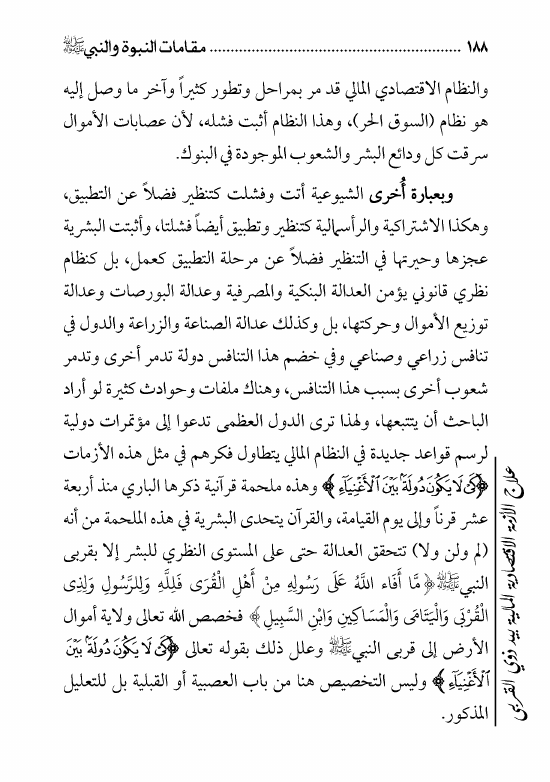 ١٨٨ ............................................................ مقامات النبوة والنبي ﷺ
والنظام الاقتصادي المالي قد مر بمراحل وتطور كثيراً وآخر ما وصل إليه
هو نظام (السوق الحر)، وهذا النظام أثبت فشله، لأن عصابات الأموال
سرقت كل ودائع البشر والشعوب الموجودة في البنوك.
وبعبارة أُخرى الشيوعية أتت وفشلت كتنظير فضلاً عن التطبيق،
وهكذا الاشتراكية والرأسمالية كتنظير وتطبيق أيضاً فشلتا، وأثبتت البشرية
عجزها وحيرتها في التنظير فضلاً عن مرحلة التطبيق كعمل، بل كنظام
نظري قانوني يؤمن العدالة البنكية والمصرفية وعدالة البورصات وعدالة
توزيع الأموال وحركتها، بل وكذلك عدالة الصناعة والزراعة والدول في
تنافس زراعي وصناعي وفي خضم هذا التنافس دولة تدمر أخرى وتدمر
شعوب أخرى بسبب هذا التنافس، وهناك ملفات وحوادث كثيرة لو أراد
الباحث أن يتتبعها، ولهذا ترى الدول العظمى تدعوا إلى مؤتمرات دولية
لرسم قواعد جديدة في النظام المالي يتطاول فكرهم في مثل هذه الأزمات
﴿كَىْ لَا يَكُونَ دُولَةًۢ بَيْنَ ٱلْأَغْنِيَآءِ﴾ وهذه ملحمة قرآنية ذكرها الباري منذ أربعة
عشر قرناً وإلى يوم القيامة، والقرآن يتحدى البشرية في هذه الملحمة من أنه
(لم ولن ولا) تتحقق العدالة حتى على المستوى النظري للبشر إلا بقربى
النبي ﷺ ﴿مَّا أَفَاء اللَّهُ عَلَى رَسُولِهِ مِنْ أَهْلِ الْقُرَى فَلِلَّهِ وَلِلرَّسُولِ وَلِذِى
الْقُرْبَى وَالْيَتَامَى وَالْمَسَاكِينِ وَابْنِ السَّبِيلِ﴾ فخصص الله تعالى ولاية أموال
الأرض إلى قربى النبي ﷺ وعلل ذلك بقوله تعالى ﴿كَىْ لَا يَكُونَ دُولَةًۢ بَيْنَ
ٱلْأَغْنِيَآءِ﴾ وليس التخصيص هنا من باب العصبية أو القبلية بل للتعليل
المذكور.
علاج الأزمة الاقتصادية المالية بيد ذوي القربى